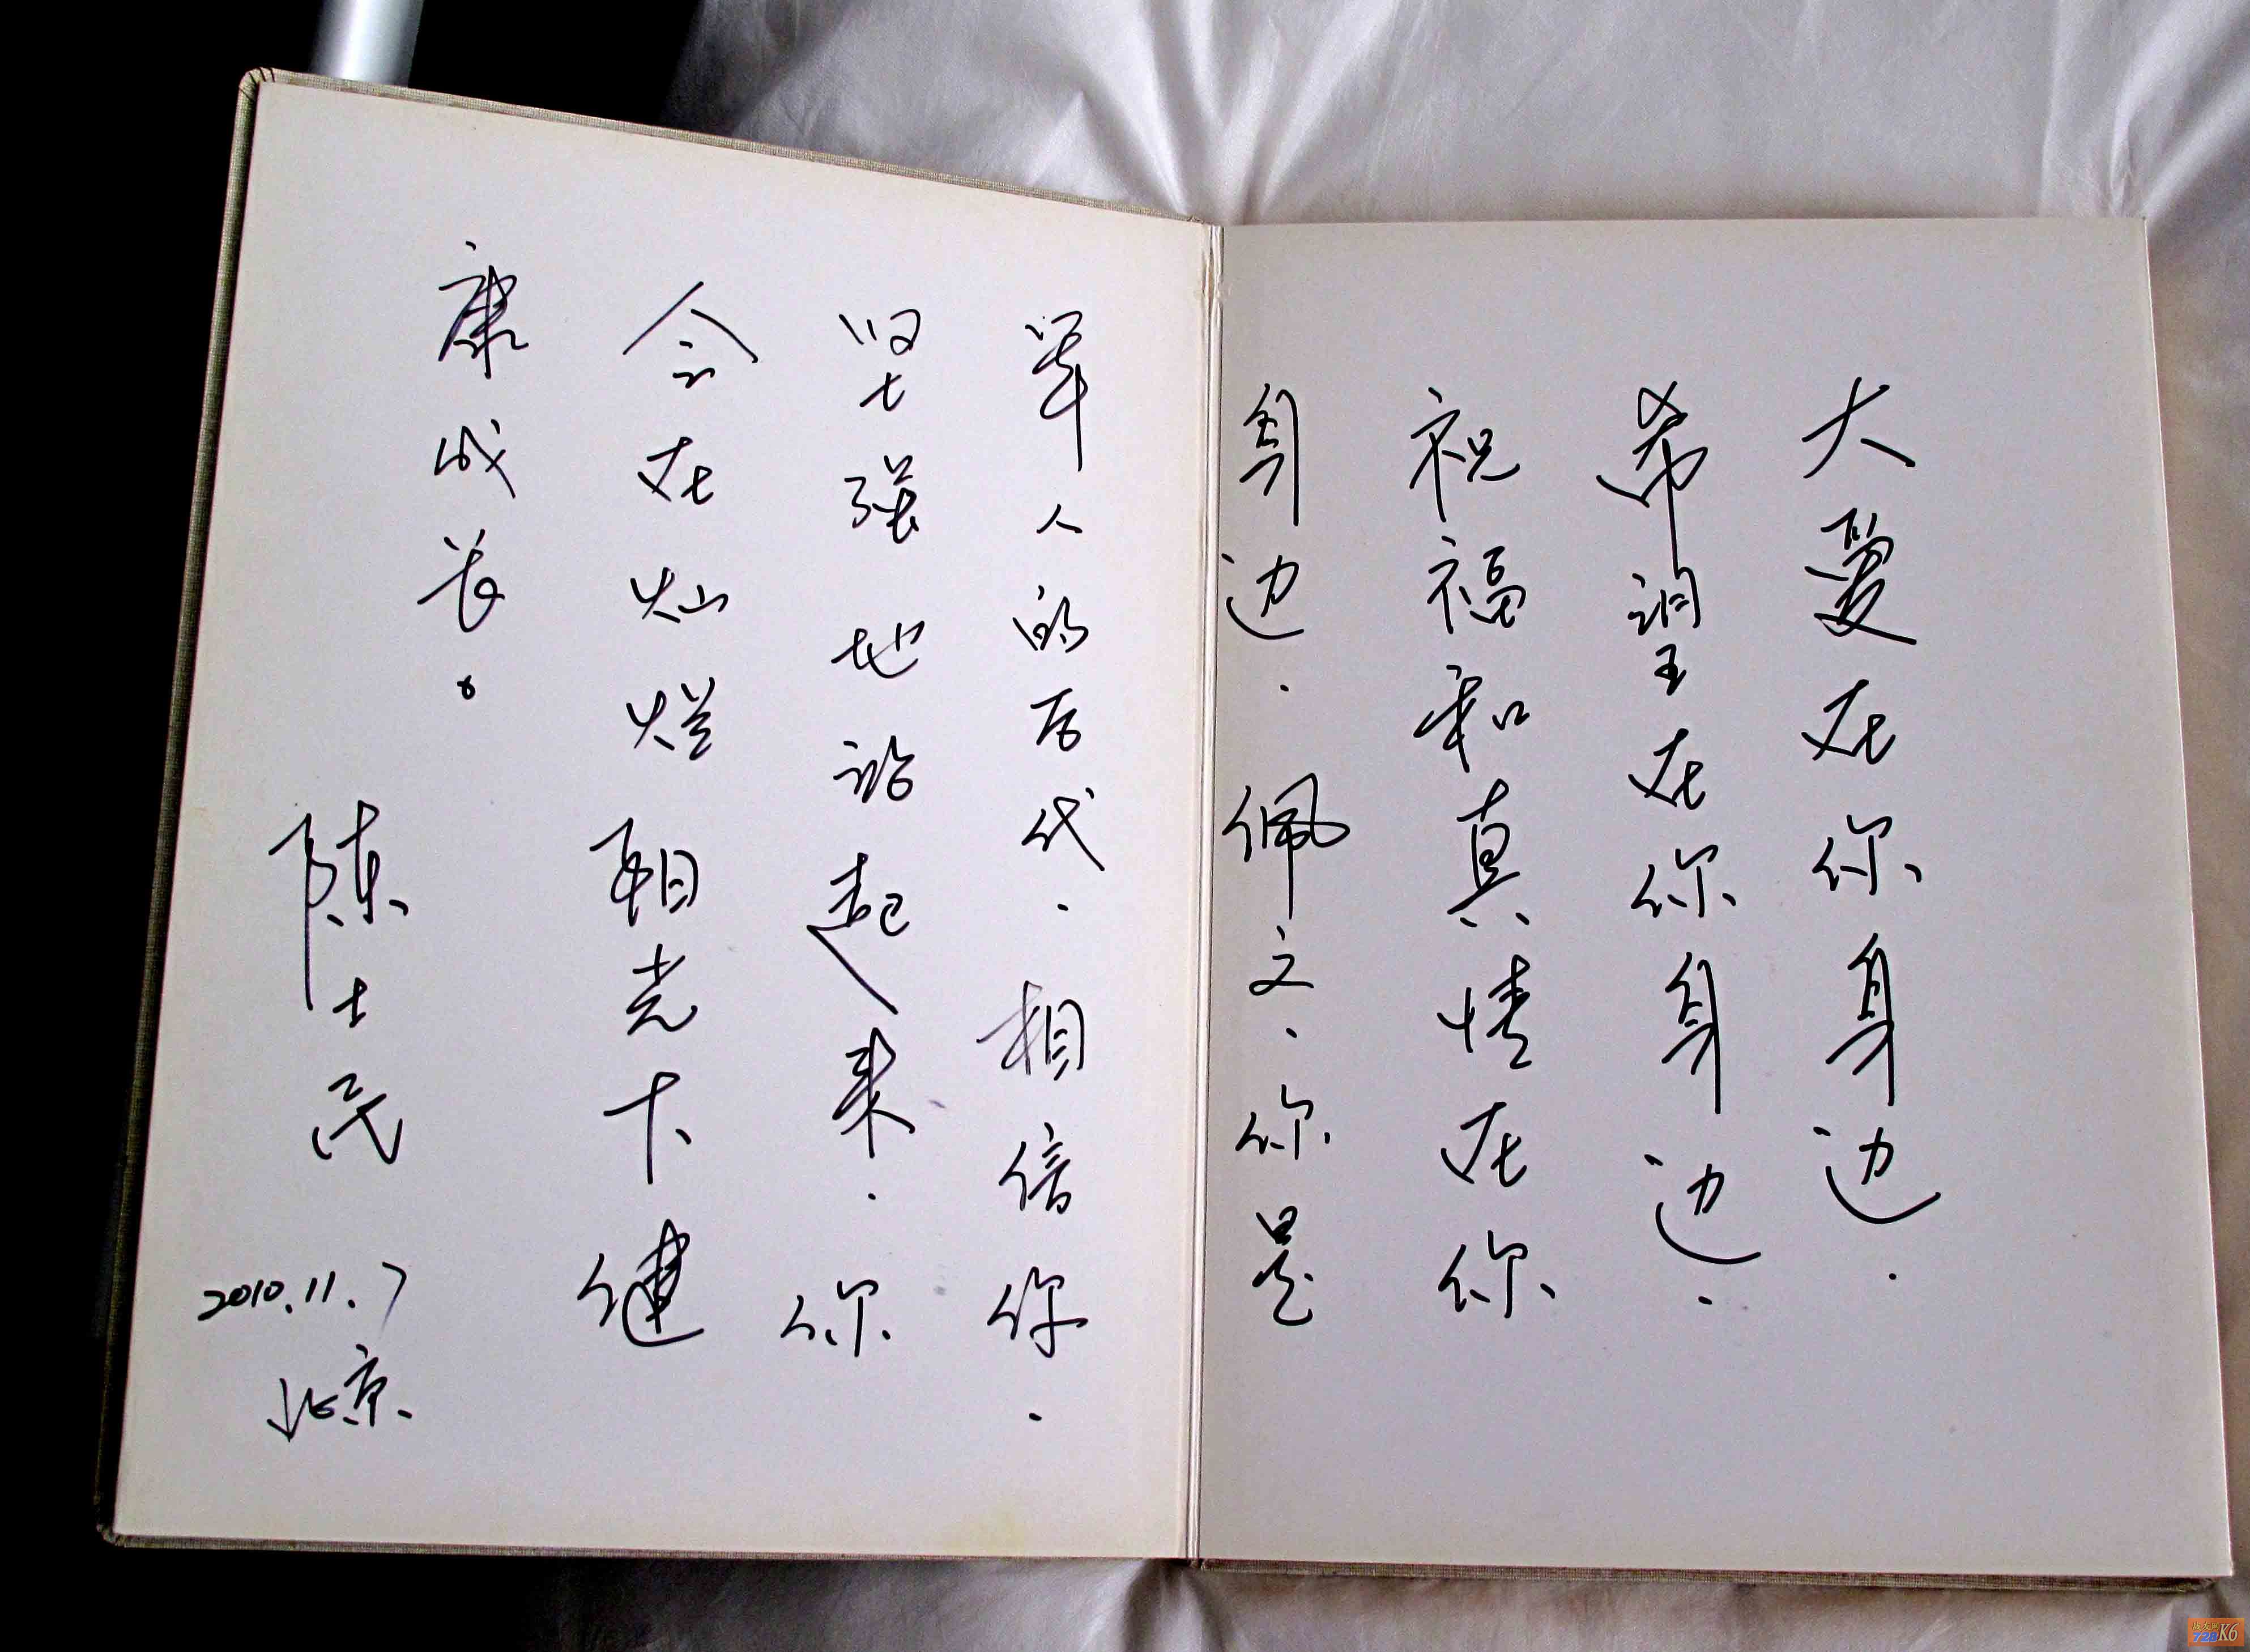 大爱在你身边.
希望在你身边.
祝福和真情在你
身边.佩文、你是
军人的后代.相信你.
坚强地站起来.你
会在灿烂阳光下健
康成长。
陈士民
2010.11.7
北京.
K6